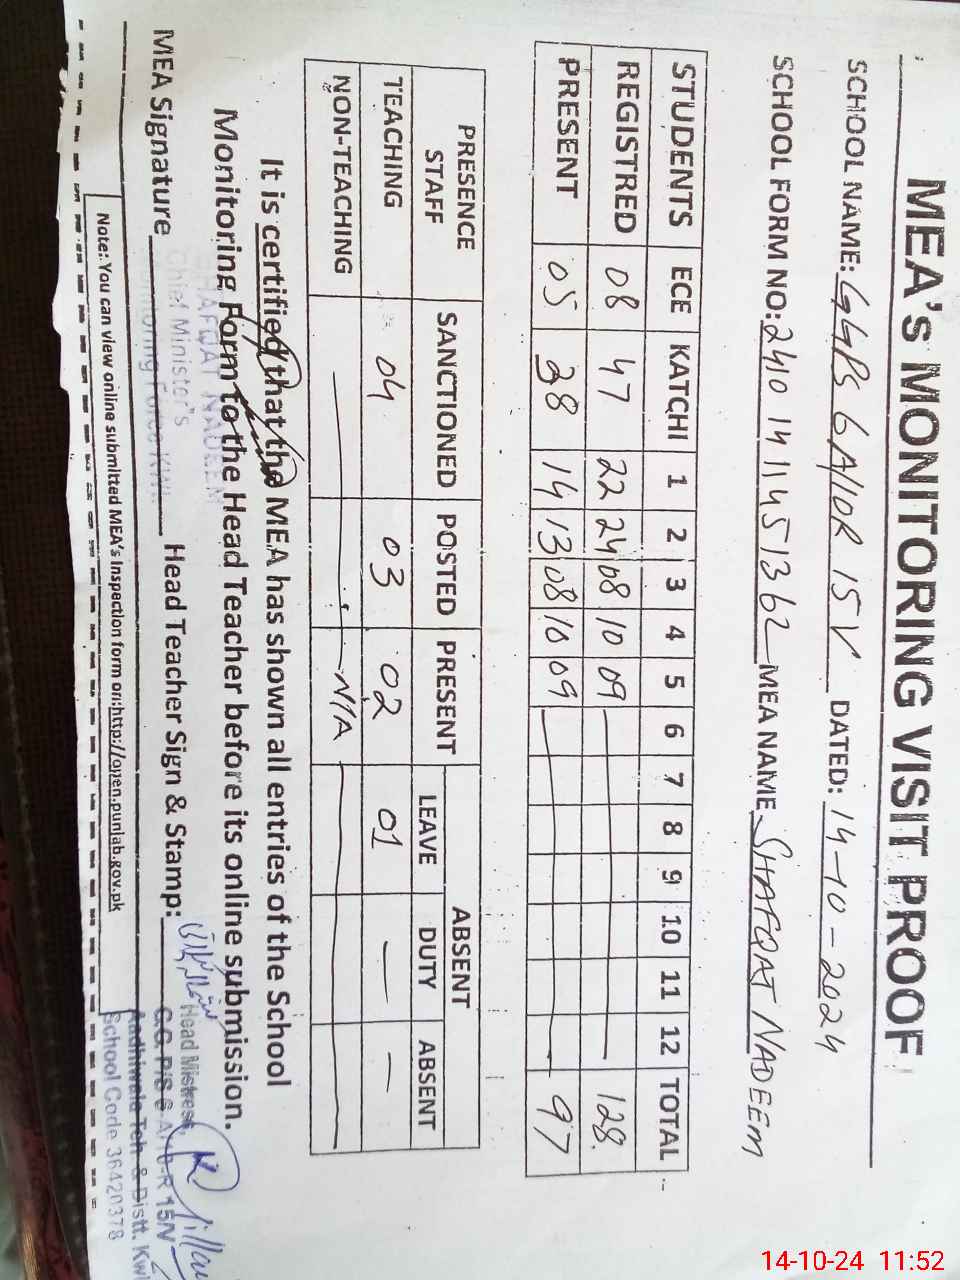 MEA's MONITORING VISIT PROOF
SCHOOL NAME: GGPS 6A/10R 15V DATED: 14-10-2024
SCHOOL FORM NO: 2410 14 1145 1362 MEA NAME SHAFQAT NADEEM
STUDENTS ECE KATCHI 1 2 3 4 5 6 7 8 9 10 11 12 TOTAL
REGISTRED 08 47 22 24 08 10 09 128
PRESENT 05 38 14 13 08 10 09 97
PRESENCE STAFF SANCTIONED POSTED PRESENT ABSENT
LEAVE DUTY ABSENT
TEACHING 04 03 02 01 — —
NON-TEACHING — N/A —
It is certified that the MEA has shown all entries of the School
Monitoring Form to the Head Teacher before its online submission.
SHAFQAT NADEEM
Chief Minister's
Monitoring Force KWL
MEA Signature Head Teacher Sign & Stamp:
Head Mistress,
G.G.P/S 6 A/10-R 15/V
Aadhiwala Teh & Distt. Kwl
School Code 36420378
Note: You can view online submitted MEA's Inspection form on:http://open.punjab.gov.pk
14-10-24 11:52